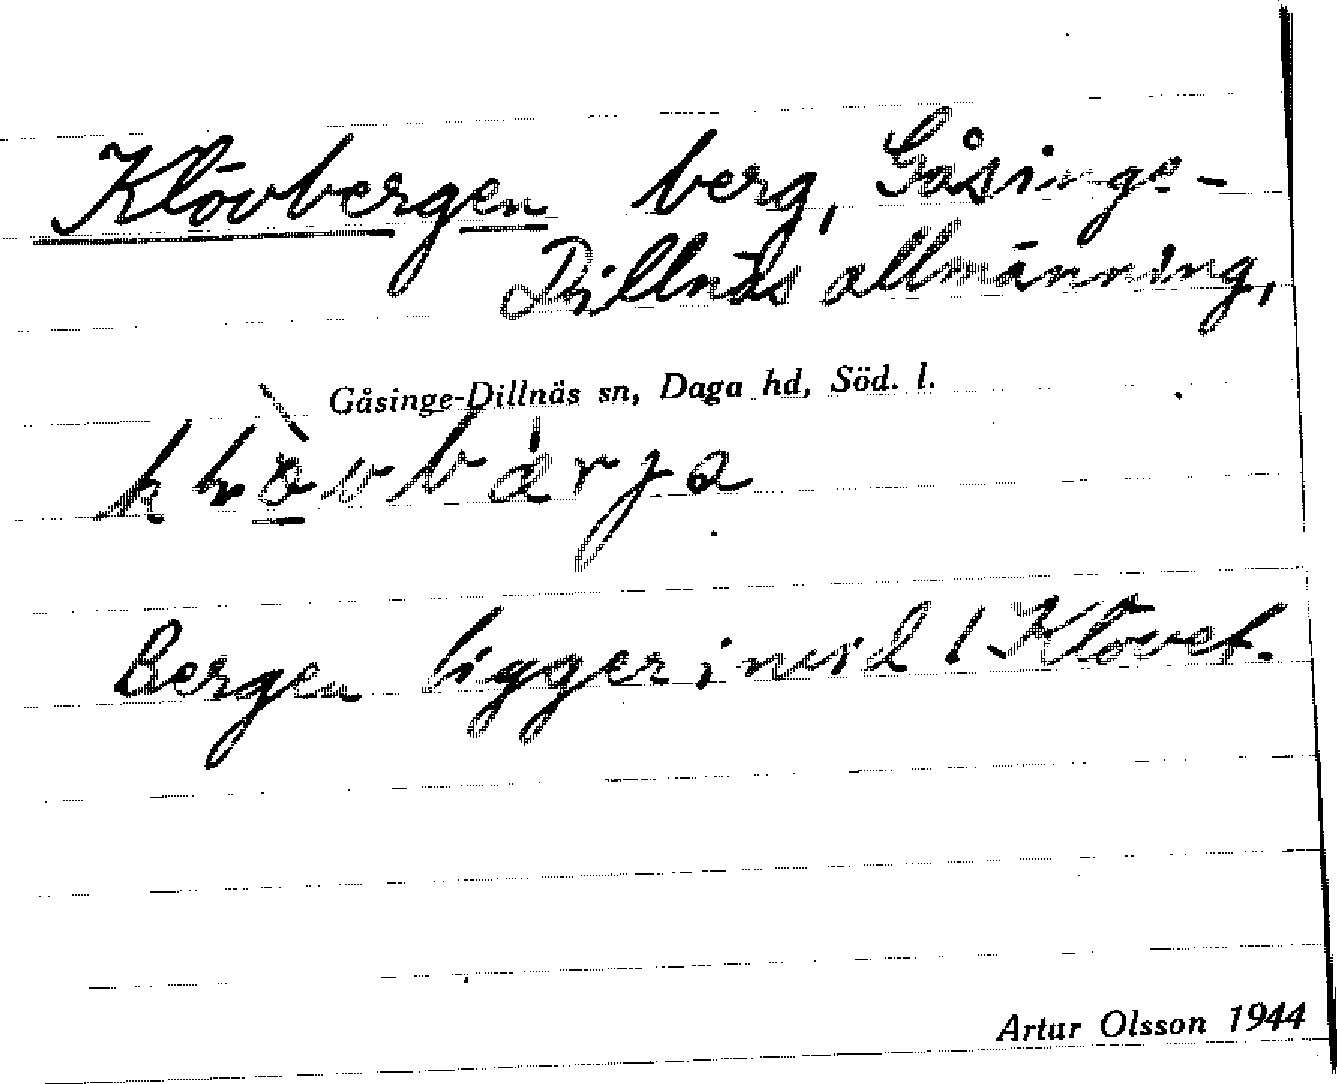 Klövbergen berg, Gåsinge-
Dillnäs allmänning,
Gåsinge-Dillnäs sn, Daga hd, Söd. l.
Bergen ligger invid Klövet.
Artur Olsson 1944